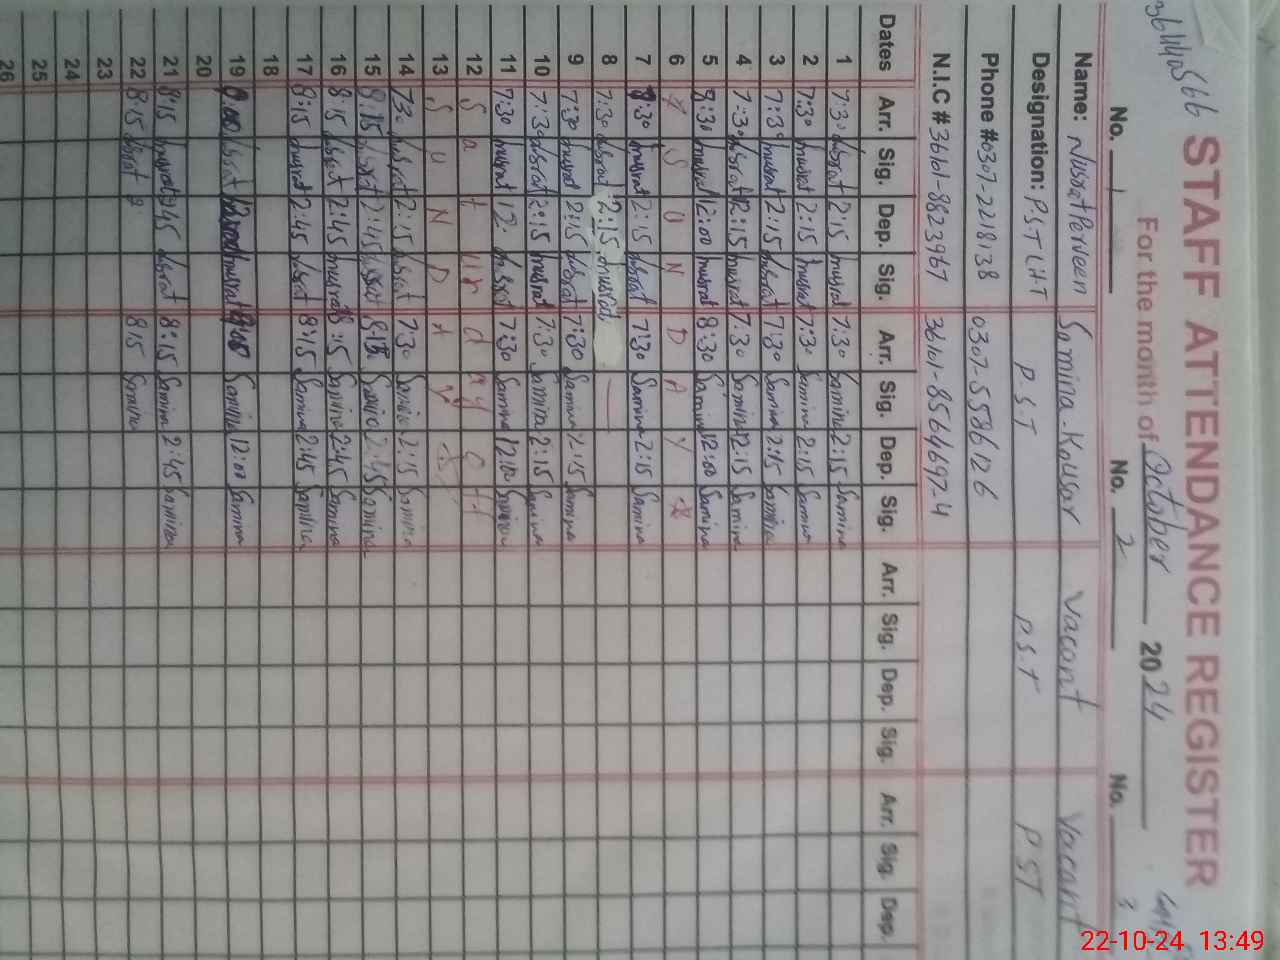 36440566
STAFF ATTENDANCE REGISTER
For the month of October 2024
No. 1 No. 2 No. 3
Name: Nusrat Perveen Samina Kousar Vacant Vacant
Designation: P.S.T P.S.T P.S.T P.ST
Phone # 0307-2218138 0307-5558612 6
N.I.C # 36101-8564697-4
Dates Arr. Sig. Dep. Sig. Arr. Sig. Dep. Sig. Arr. Sig. Dep. Sig. Arr. Sig. Dep.
1 7:30 nusrat 2:15 nusrat 7:30 Samina 2:15 Samina
2 7:30 nusrat 2:15 nusrat 7:30 Samina 2:15 Samina
3 7:30 nusrat 2:15 nusrat 7:30 Samina 2:15 Samina
4 7:30 nusrat 12:15 nusrat 7:30 Samina 12:15 Samina
5 8:30 nusrat 12:00 nusrat 8:30 Samina 12:00 Samina
6 S U N D A Y
7 nusrat 2:15 nusrat 7:30 Samina 2:15 Samina
8 7:30 nusrat 2:15 nusrat
9 7:30 nusrat 2:15 nusrat 7:30 Samina 2:15 Samina
10 7:30 nusrat 2:15 nusrat 7:30 Samina 2:15 Samina
11 7:30 nusrat 12: nusrat 7:30 Samina 12:00 Samina
12 S a t u r d a y
13 S U N D A Y
14 7:30 nusrat 2:15 nusrat 7:30 Samina 2:15 Samina
15 8:15 nusrat 2:45 nusrat 8:15 Samina 2:45 Samina
16 8:15 nusrat 2:45 nusrat 8:15 Samina 2:45 Samina
17 8:15 nusrat 2:45 nusrat 8:15 Samina 2:45 Samina
18
19 nusrat nusrat Samina 12:00 Samina
20
21 8:15 nusrat 2:45 nusrat 8:15 Samina 2:45 Samina
22 8:15 nusrat 8:15 Samina
23
24
25
26
22-10-24 13:49